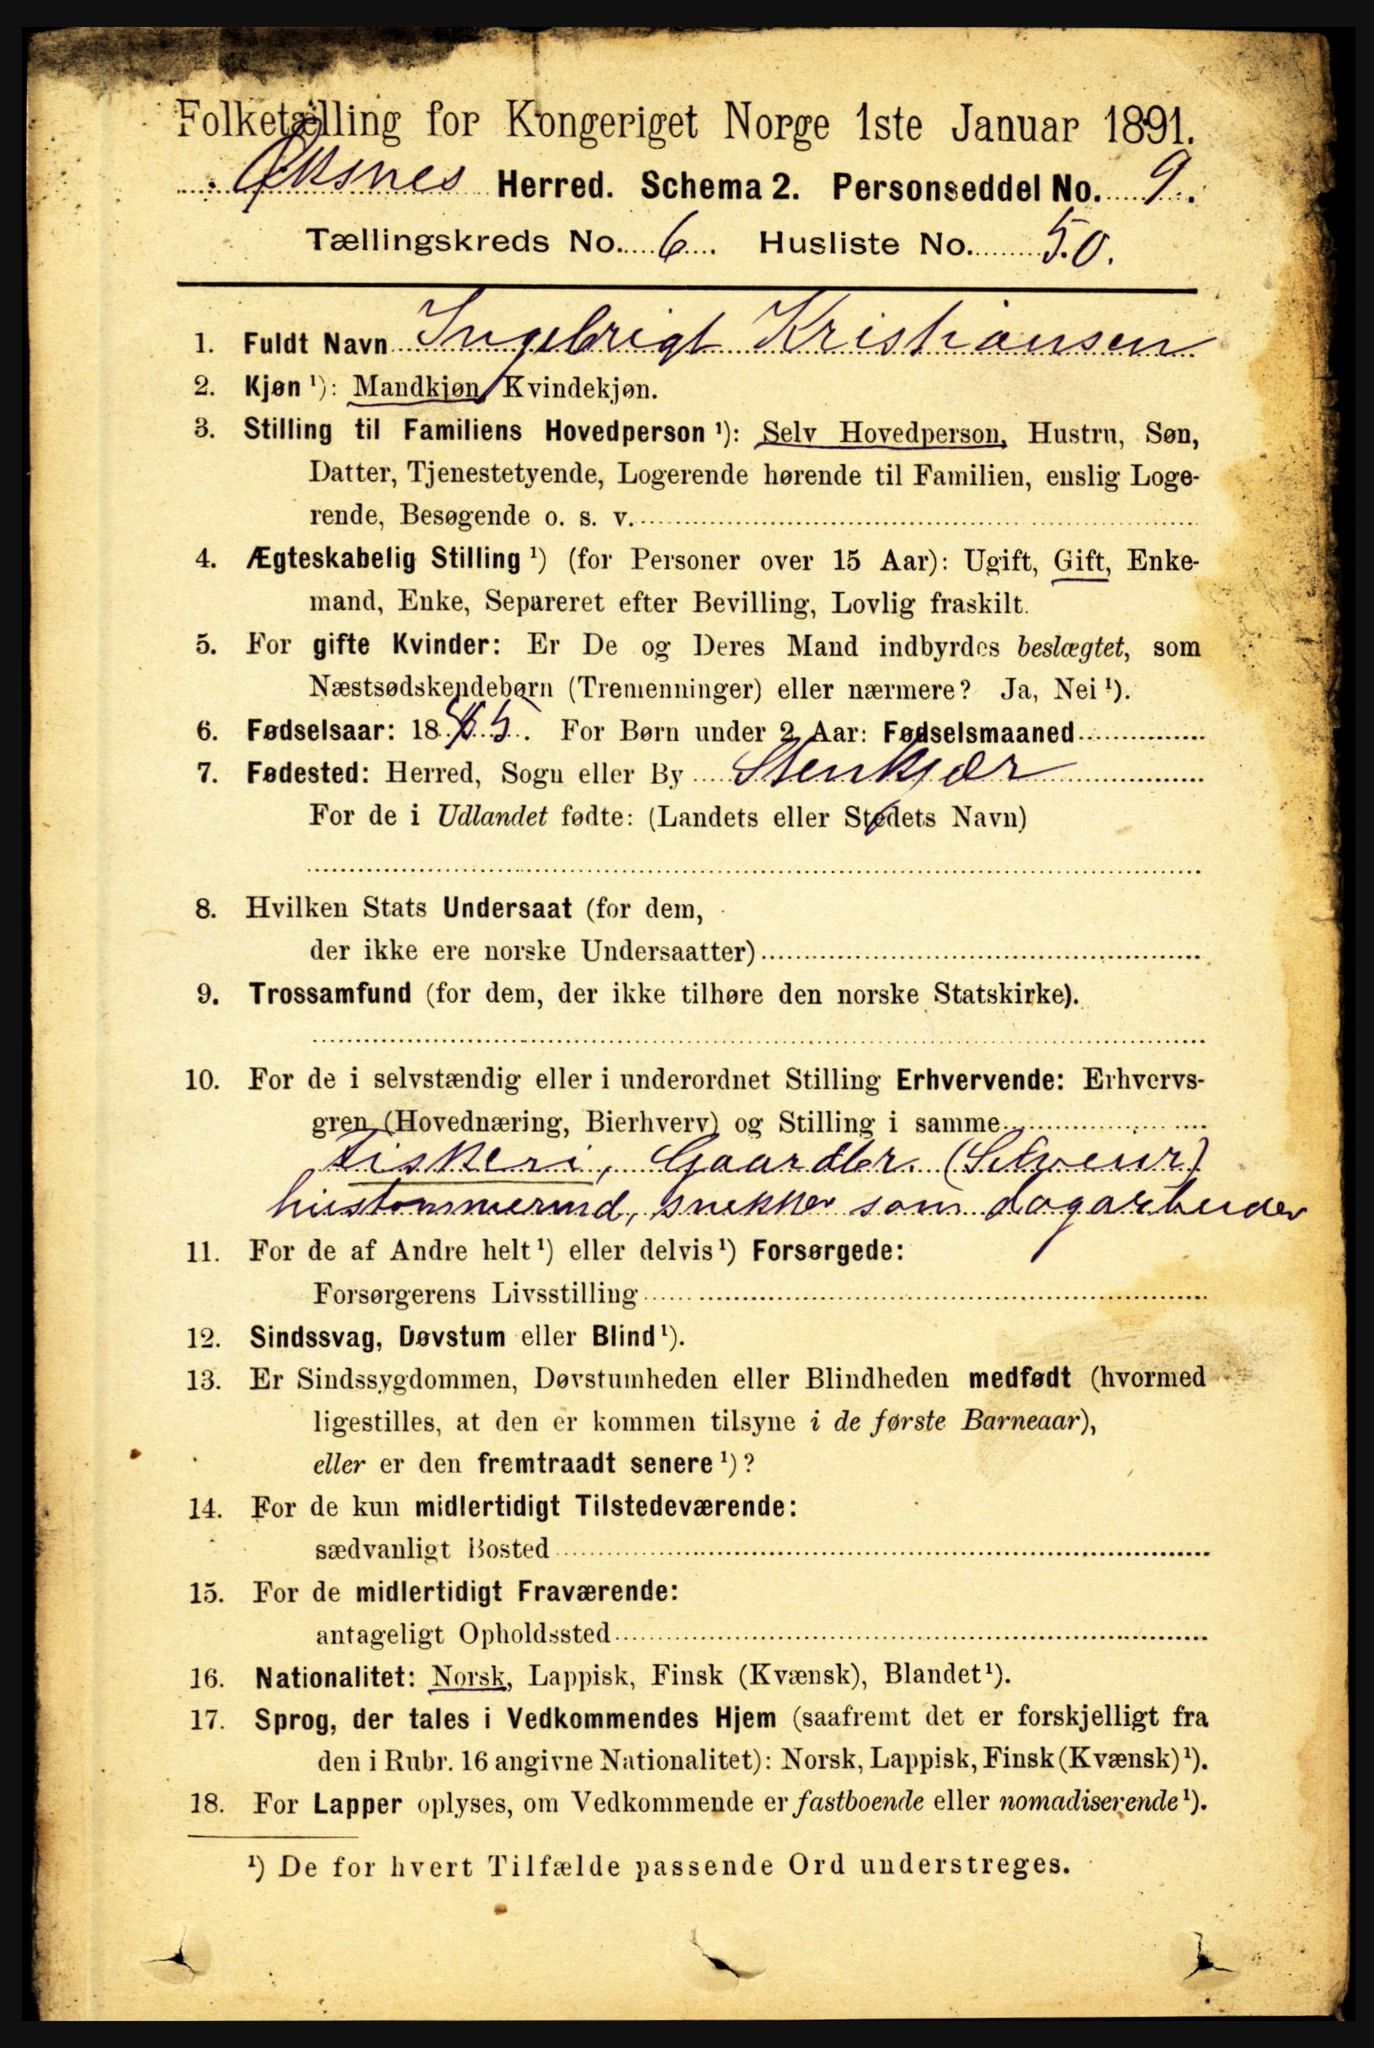 Folketælling for Kongeriget Norge 1ste Januar 1891.
Øksnes Herred. Schema 2. Personseddel No. 9.
Tællingskreds No. 6. Husliste No. 50.
1. Fuldt Navn Ingebrigt Kristiansen
2. Kjøn ¹): Mandkjøn, Kvindekjøn.
3. Stilling til Familiens Hovedperson ¹): Selv Hovedperson, Hustru, Søn,
Datter, Tjenestetyende, Logerende hørende til Familien, enslig Loge-
rende, Besøgende o. s. v.
4. Ægteskabelig Stilling ¹) (for Personer over 15 Aar): Ugift, Gift, Enke-
mand, Enke, Separeret efter Bevilling, Lovlig fraskilt.
5. For gifte Kvinder: Er De og Deres Mand indbyrdes beslægtet, som
Næstsødskendebørn (Tremenninger) eller nærmere? Ja, Nei ¹).
6. Fødselsaar: 18 . For Børn under 2 Aar: Fødselsmaaned
7. Fødested: Herred, Sogn eller By Stenkjær
For de i Udlandet fødte: (Landets eller Stedets Navn)
8. Hvilken Stats Undersaat (for dem,
der ikke ere norske Undersaatter)
9. Trossamfund (for dem, der ikke tilhøre den norske Statskirke).
10. For de i selvstændig eller i underordnet Stilling Erhvervende: Erhvervs-
gren (Hovednæring, Bierhverv) og Stilling i samme
Fiskeri, Gaardbr. (Selveier)
hustømmermd, snekker som dagarbeider
11. For de af Andre helt ¹) eller delvis ¹) Forsørgede:
Forsørgerens Livsstilling
12. Sindssvag, Døvstum eller Blind ¹).
13. Er Sindssygdommen, Døvstumheden eller Blindheden medfødt (hvormed
ligestilles, at den er kommen tilsyne i de første Barneaar),
eller er den fremtraadt senere ¹)?
14. For de kun midlertidigt Tilstedeværende:
sædvanligt Bosted
15. For de midlertidigt Fraværende:
antageligt Opholdssted
16. Nationalitet: Norsk, Lappisk, Finsk (Kvænsk), Blandet ¹).
17. Sprog, der tales i Vedkommendes Hjem (saafremt det er forskjelligt fra
den i Rubr. 16 angivne Nationalitet): Norsk, Lappisk, Finsk (Kvænsk) ¹).
18. For Lapper oplyses, om Vedkommende er fastboende eller nomadiserende ¹).
¹) De for hvert Tilfælde passende Ord understreges.